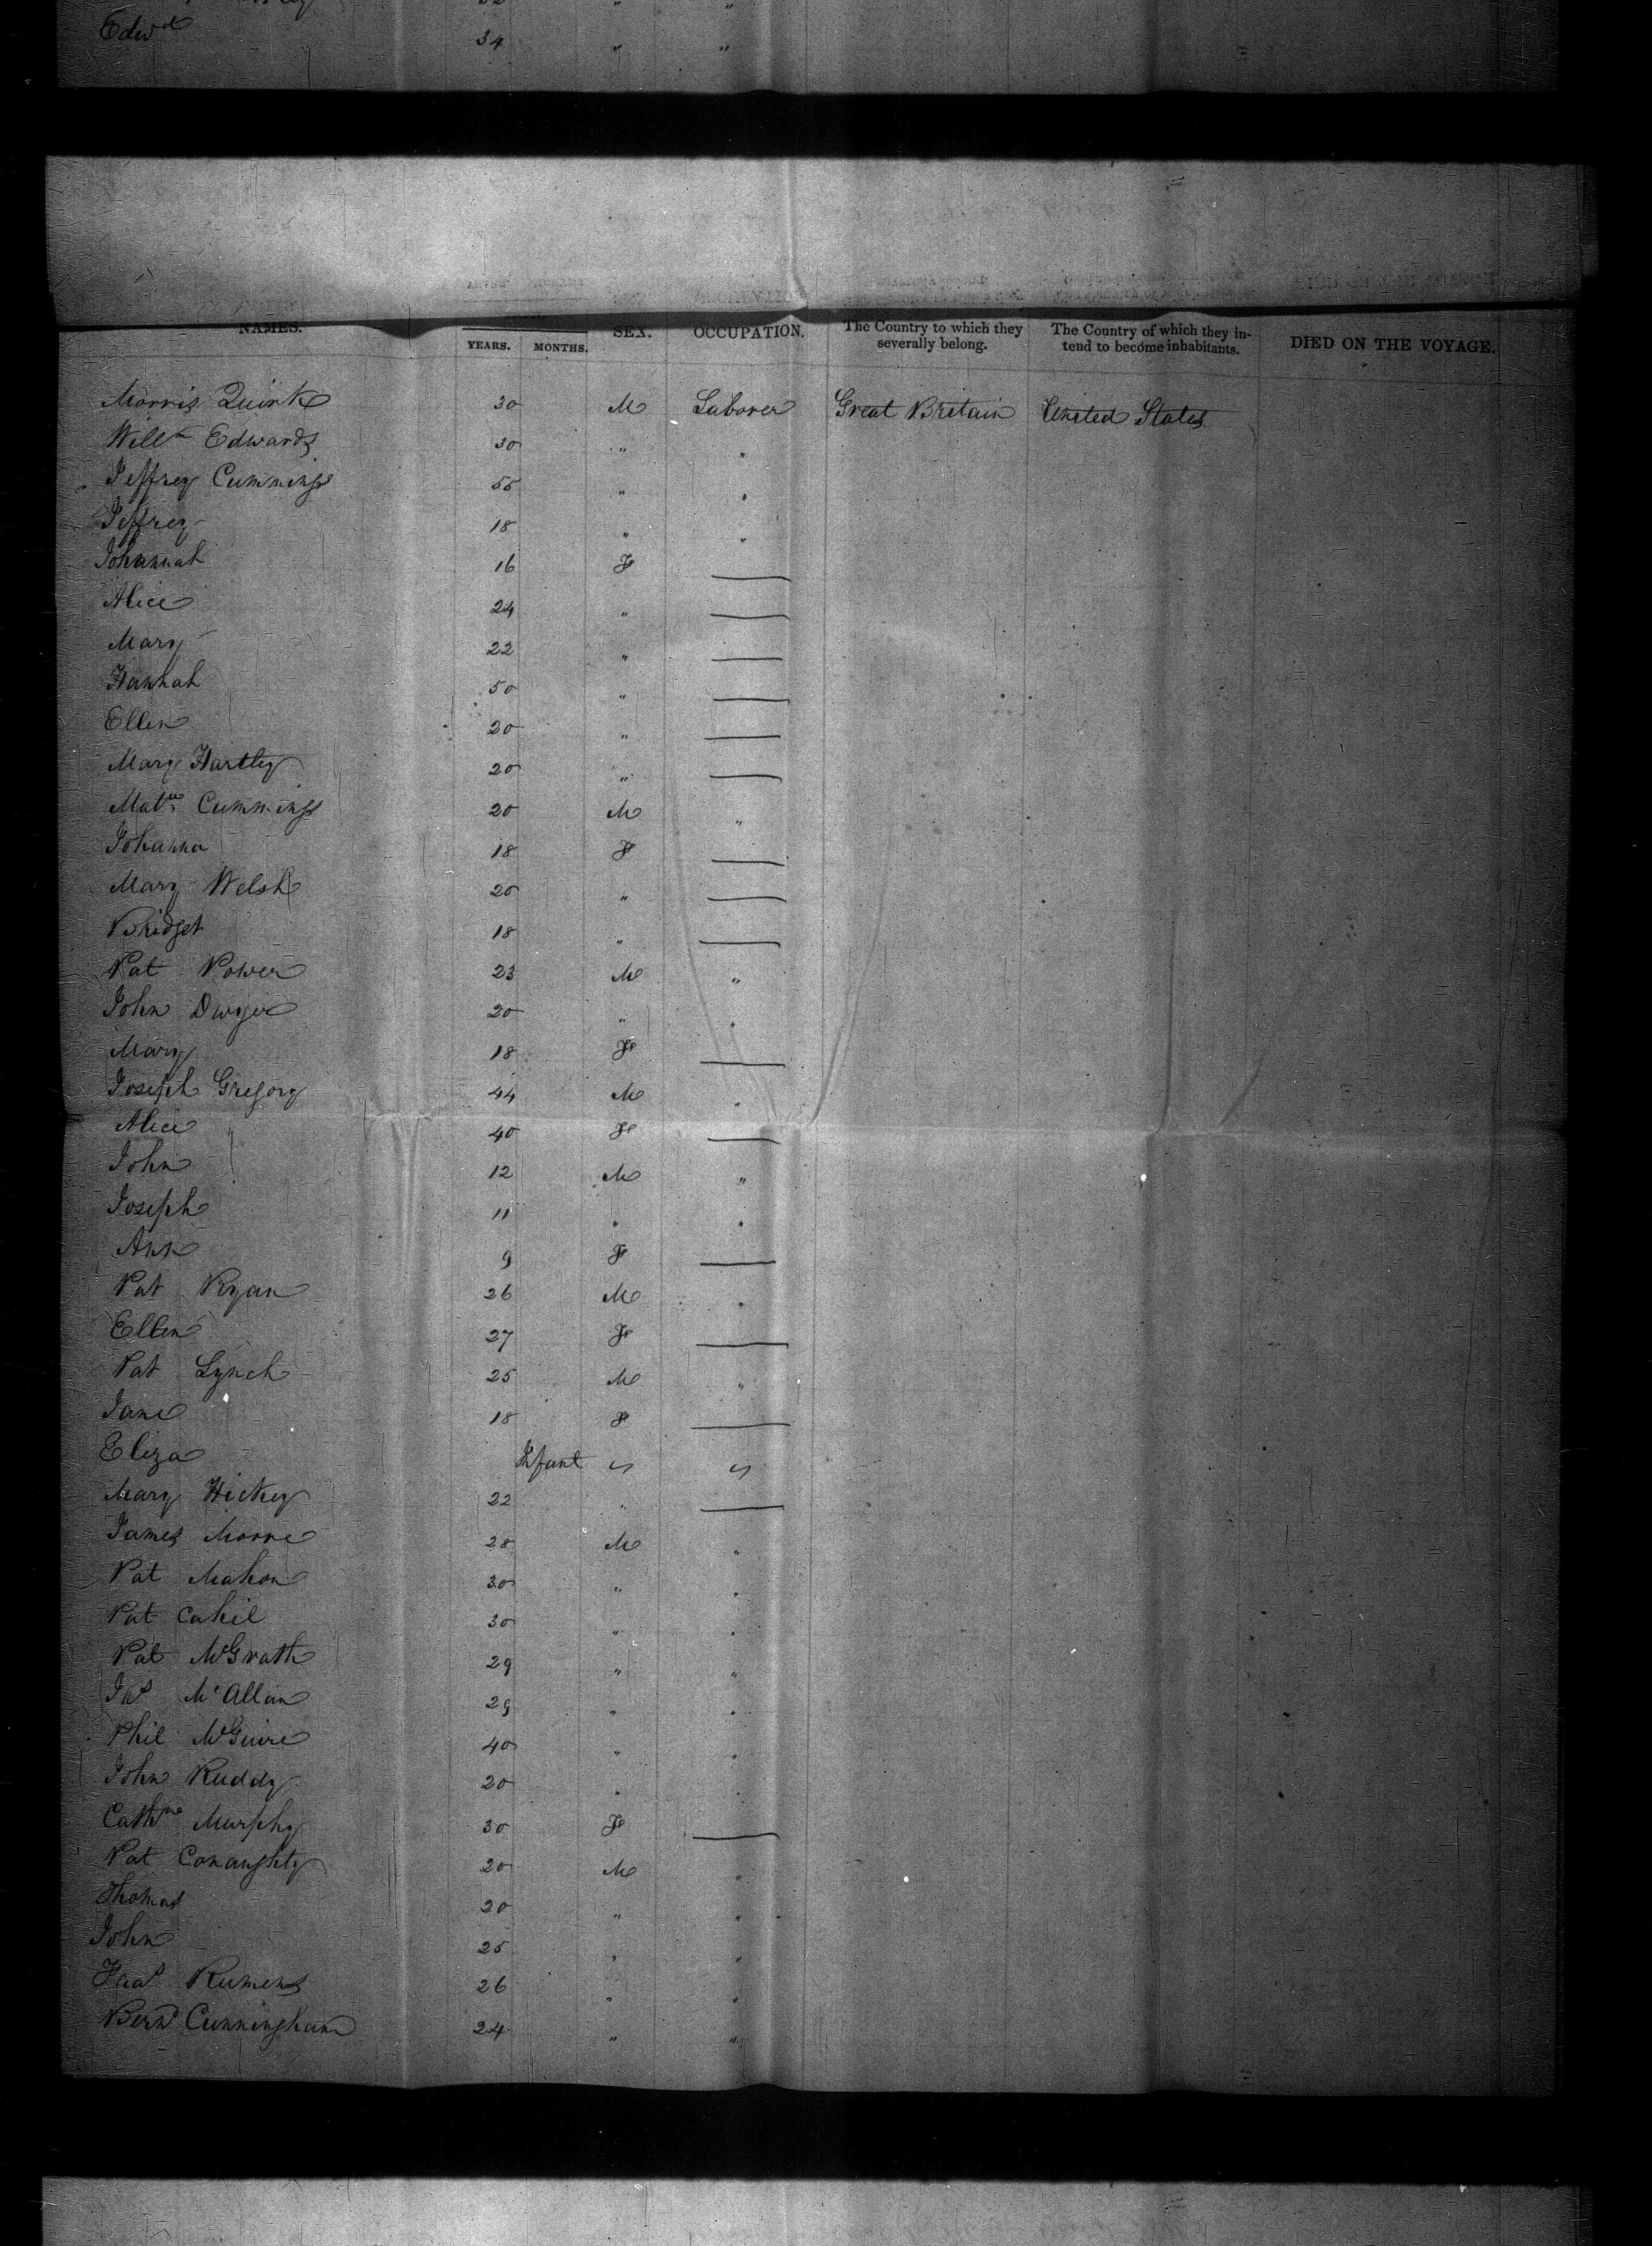 Edwd 34 " "
NAMES. YEARS. MONTHS. SEX. OCCUPATION. The Country to which they severally belong. The Country of which they intend to become inhabitants. DIED ON THE VOYAGE.
Morris Quirk 30 M Laborer Great Britain United States
Willm Edwards 30 " "
Jeffrey Cummings 55 " "
Jeffrey 18 " "
Johannah 16 F —
Alice 24 " —
Mary 22 " —
Hannah 50 " —
Ellen 20 " —
Mary Hartley 20 " —
Matw Cummings 20 M "
Johanna 18 F —
Mary Welsh 20 " —
Bridget 18 " —
Pat Power 23 M "
John Dwyer 20 " "
Mary 18 F —
Joseph Gregory 44 M "
Alice 40 F —
John 12 M "
Joseph 11 " "
Ann 9 F —
Pat Ryan 26 M "
Ellen 27 F —
Pat Lynch 25 M "
Jane 18 F —
Eliza Infant " "
Mary Hickey 22 " —
James 28 M "
Pat Mahon 30 " "
Pat Cahil 30 " "
Pat McGrath 29 " "
Jas McAllan 29 " "
Phil McGuire 40 " "
John Ruddy 20 " "
Cathne Murphy 30 F —
Pat Conaughty 20 M "
Thomas 20 " "
John 25 " "
26 " "
Bernd Cunningham 24 " "